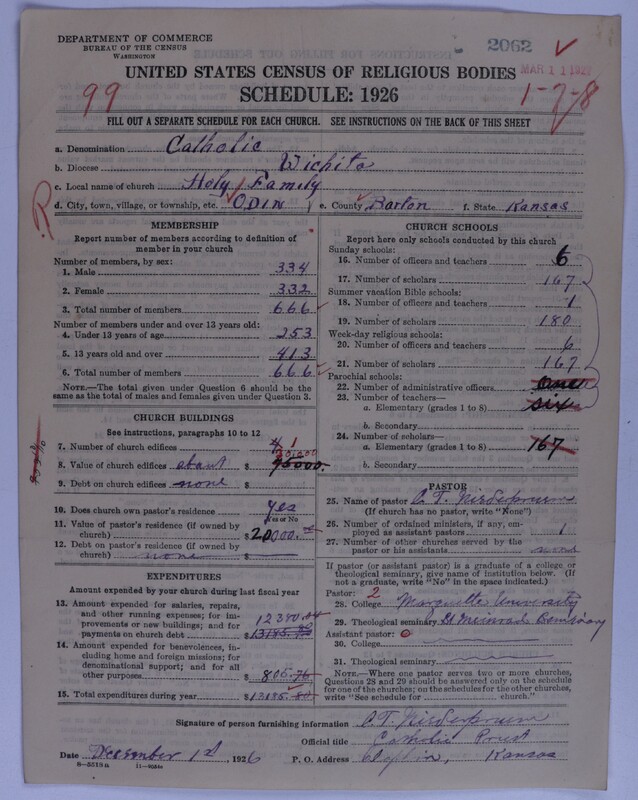 DEPARTMENT OF COMMERCE
BUREAU OF THE CENSUS
WASHINGTON
2062
MAR 11 1927
UNITED STATES CENSUS OF RELIGIOUS BODIES
99
SCHEDULE: 1926
1-7-8
FILL OUT A SEPARATE SCHEDULE FOR EACH CHURCH. SEE INSTRUCTIONS ON THE BACK OF THIS SHEET
a. Denomination Catholic
b. Diocese Wichita
c. Local name of church Holy Family
d. City, town, village, or township, etc. ODIN e. County Barton f. State Kansas
MEMBERSHIP
Report number of members according to definition of
member in your church
Number of members, by sex:
1. Male 334
2. Female 332
3. Total number of members 666
Number of members under and over 13 years old:
4. Under 13 years of age 253
5. 13 years old and over 413
6. Total number of members 666
NOTE.—The total given under Question 6 should be
same as the total of males and females given under Question 3.
CHURCH BUILDINGS
See instructions, paragraphs 10 to 12
7. Number of church edifices 1
8. Value of church edifices about $ 95000.
9. Debt on church edifices none $
10. Does church own pastor's residence yes
Yes or No
11. Value of pastor's residence (if owned by
church) $ 20000.
12. Debt on pastor's residence (if owned by
church) none $
EXPENDITURES
Amount expended by your church during last fiscal year
13. Amount expended for salaries, repairs,
and other running expenses; for im-
provements or new buildings; and for
payments on church debt 12380.04 $ 13185.80
14. Amount expended for benevolences,
including home and foreign missions; for
denominational support; and for all
other purposes. $ 805.76
15. Total expenditures during year $ 13185.80
CHURCH SCHOOLS
Report here only schools conducted by this church
Sunday schools:
16. Number of officers and teachers 6
17. Number of scholars 167
Summer vacation Bible schools:
18. Number of officers and teachers 1
19. Number of scholars 180
Week-day religious schools:
20. Number of officers and teachers 6
21. Number of scholars 167
Parochial schools:
22. Number of administrative officers one
23. Number of teachers—
a. Elementary (grades 1 to 8) six
b. Secondary
24. Number of scholars—
a. Elementary (grades 1 to 8) 167
b. Secondary
PASTOR
25. Name of pastor C. T. Niederpruem
(If church has no pastor, write "None")
26. Number of ordained ministers, if any, em-
ployed as assistant pastors 1
27. Number of other churches served by the
pastor or his assistants none
If pastor (or assistant pastor) is a graduate of a college or
theological seminary, give name of institution below. (If
not a graduate, write "No" in the space indicated.)
Pastor: 2
28. College Marquette University
29. Theological seminary St Meinrad Seminary
Assistant pastor: 0
30. College
31. Theological seminary
NOTE.—Where one pastor serves two or more churches,
Questions 28 and 29 should be answered only on the schedule
for one of the churches; on the schedules for the other churches,
write "See schedule for church."
Signature of person furnishing information C. T. Niederpruem
Official title Catholic Priest
Date December 1st, 1926 P. O. Address Claflin, Kansas